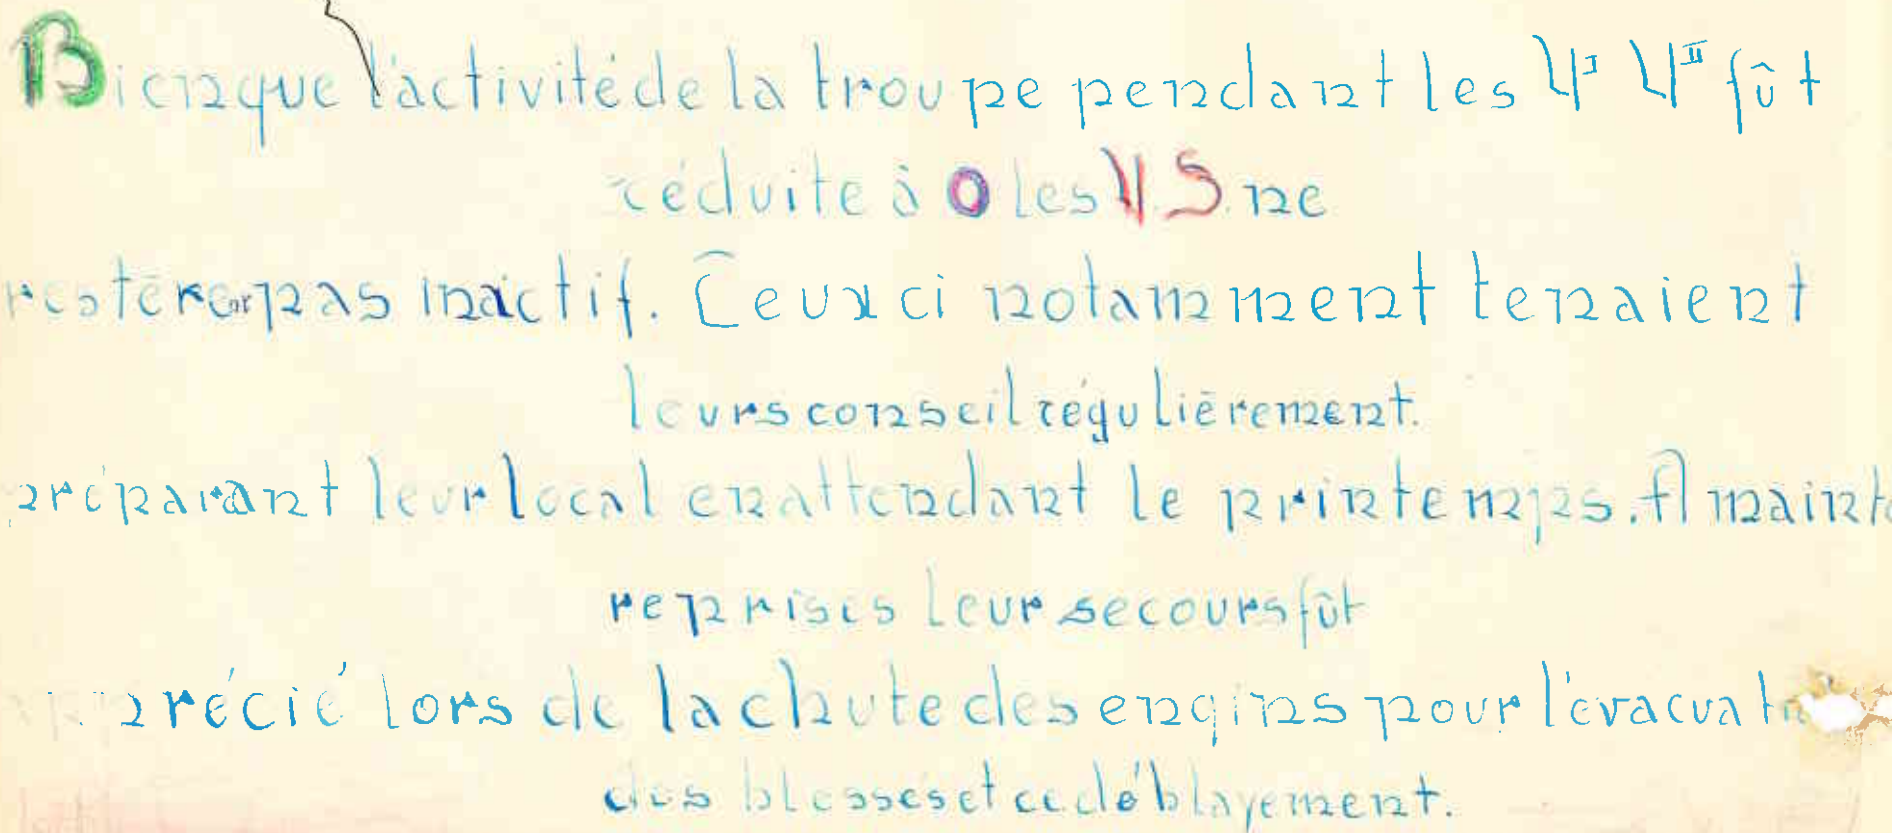 Bien que l'activité de la troupe pendant les V¹ V² fût
réduite à 0 les V.S. ne
restèrent pas inactif. Ceux ci notamment tenaient
leurs conseil régulièrement.
préparant leur local en attendant le printemps. A maint
reprises leur secours fût
apprécié lors de la chute des engins pour l'évacuat
des blessés et de déblayement.